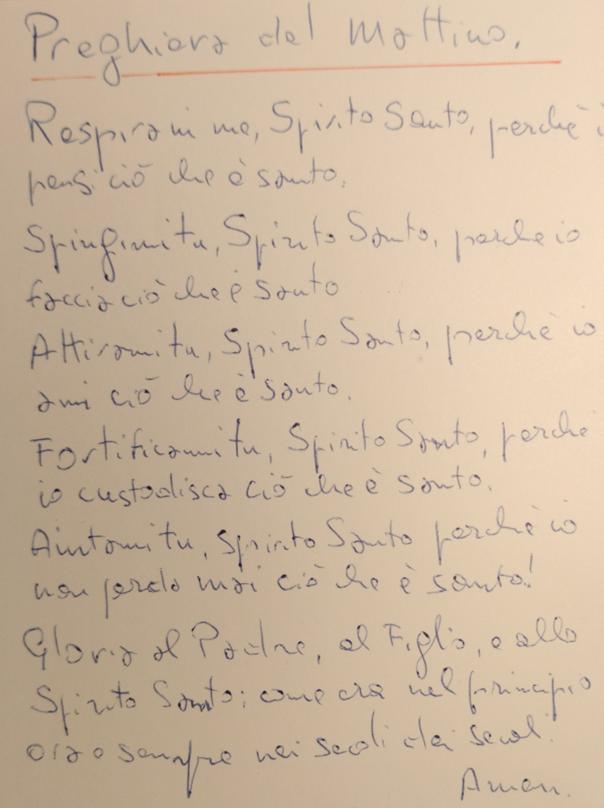 Preghiera del Mattino.
Respira in me, Spirito Santo, perchè i
pensi ciò che è santo.
Spingimi tu, Spirito Santo, perchè io
faccia ciò che è santo
Attirami tu, Spirito Santo, perchè io
ami ciò che è santo.
Fortificami tu, Spirito Santo, perchè
io custodisca ciò che è santo.
Aiutami tu, Spirito Santo perchè io
non perda mai ciò che è santo!
Gloria al Padre, al Figlio, e allo
Spirito Santo; come era nel principio
ora e sempre nei secoli dei secoli.
Amen.